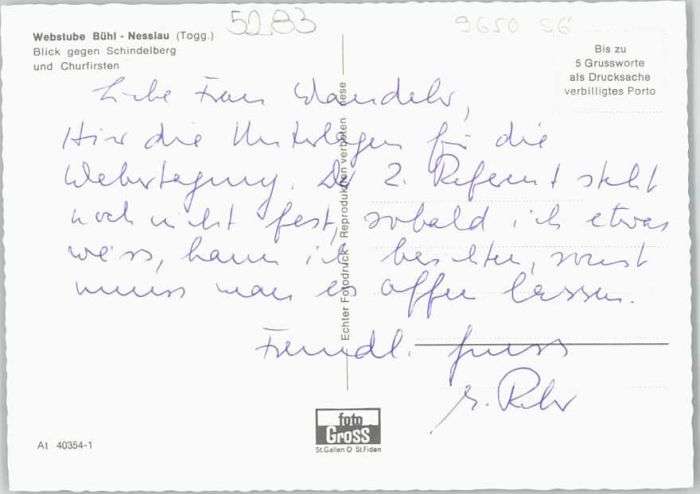 50.83
9650 S6
Webstube Bühl - Nesslau (Togg.)
Blick gegen Schindelberg
und Churfirsten
Bis zu
5 Grussworte
als Drucksache
verbilligtes Porto
Liebe Frau
Hier die Unterlagen für die
Webertagung. Der 2. Referent steht
noch nicht fest, sobald ich etwas
weiss, kann ich berichten, sonst
muss man es offen lassen.
Freundl. Gruss
Echter Fotodruck Reproduktion verboten
foto
Gross
St.Gallen O St.Fiden
At 40354-1